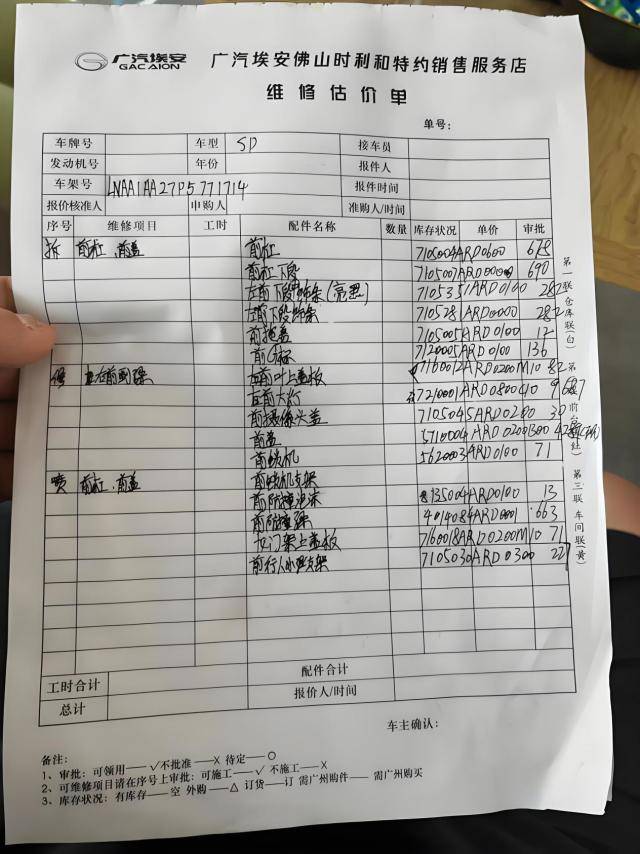 广汽埃安 广汽埃安佛山时利和特约销售服务店
GAC AION
维修估价单
单号：
车牌号 车型 SD 接车员
发动机号 年份 报件人
车架号 LNAA1AA27P5771714 报件时间
报价核准人 申购人 准购人/时间
序号 维修项目 工时 配件名称 数量 库存状况 单价 审批
拆 前杠、前盖 前杠 7105004ARD0600 675
前杠下段 7105007ARD0000 690
左前下段饰条(亮黑) 7105351ARD0100 282
左前下段饰条 7105281ARD0000 282
前拖盖 7105005ARD0100 12
前G标 7120005ARD0100 136
左前叶上盖板 7160012ARD0200M10 82
左前大灯 7210001ARD0800C10
前摄像头盖 7105045ARD0200 30
前盖 5710004ARD0200B00
前锁机 5620003ARD0100 71
喷 前杠、前盖 前锁机支架
前防撞泡沫 8135004ARD0100 13
前防撞梁 4014084ARD0001 663
龙门架上盖板 7160018ARD0200M10 71
前行人小腿支架 7105030ARD0300 227
第一联仓库联(白)
第三联 车间联(黄)
工时合计 配件合计
总计 报价人/时间
车主确认：
备注：
1、审批：可领用——√不批准——X 待定——O
2、可维修项目请在序号上审批：可施工——√ 不施工——X
3、库存状况：有库存——空 外购——△ 订货——订 需广州购件—— 需广州购买